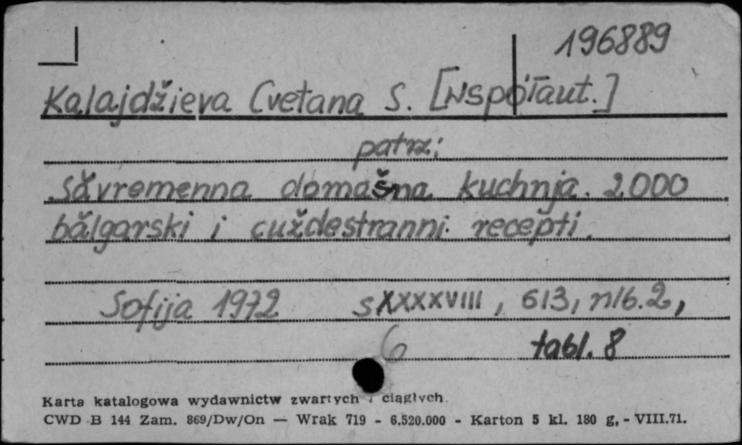 196889
Kalajdžieva Cvetana S. [Współaut.]
patrz:
Săvremenna domašna kuchnja. 2000
bălgarski i čuždestranni recepti.
Sofija 1972 sXXXXVIII, 613, nlb.2,
6 tabl. 8
Karta katalogowa wydawnictw zwartych i ciągłych.
CWD B 144 Zam. 869/Dw/On — Wrak 719 - 6.520.000 - Karton 5 kl. 180 g, - VIII.71.